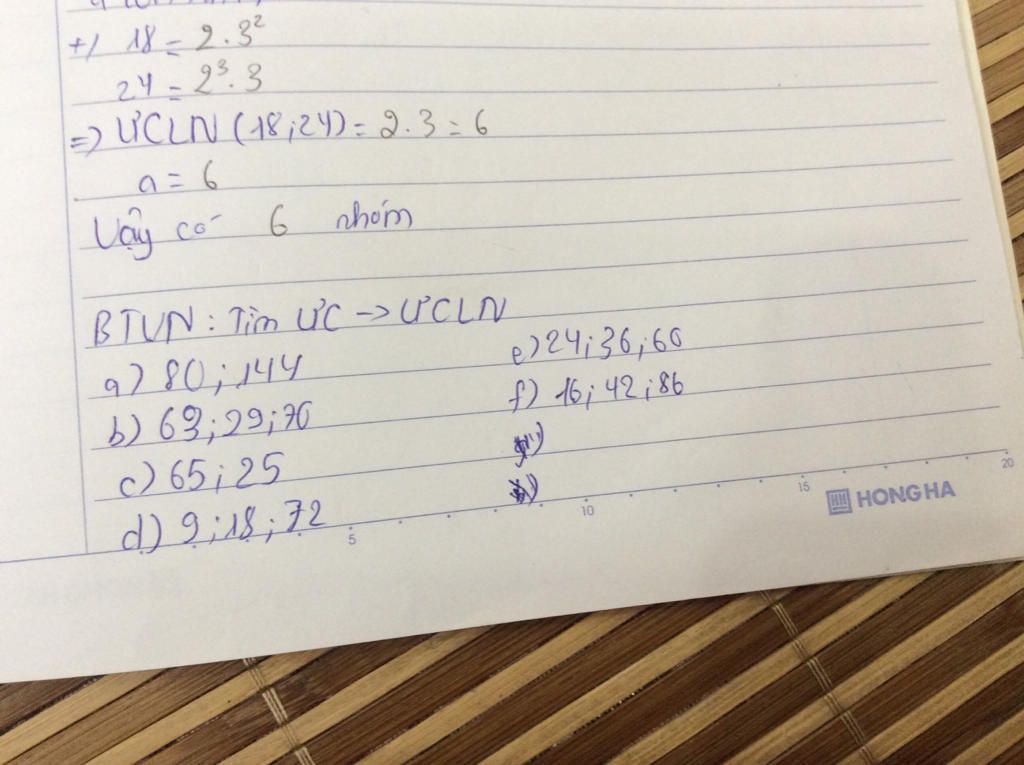 +/ 18 = 2.3²
24 = 2³.3
=) ƯCLN (18;24) = 2.3 = 6
a = 6
Vậy có 6 nhóm
BTVN: Tìm ƯC -> ƯCLN
a) 80; 144
b) 63; 29; 70
c) 65; 25
d) 9; 18; 72
e) 24; 36; 60
f) 16; 42; 86
5
10
15
20
HONG HA